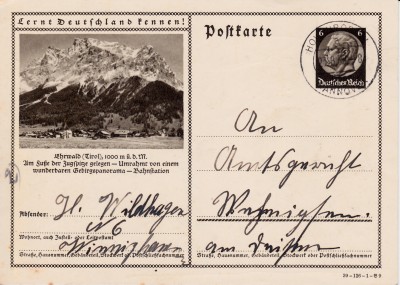 Lernt Deutschland kennen!
Ehrwald (Tirol), 1000 m ü. d. M.
Am Fuße der Zugspitze gelegen — Umrahmt von einem
wunderbaren Gebirgspanorama — Bahnstation
Absender: H. Wildhagen
Wohnort, auch Zustell- oder Leitpostamt
Straße, Hausnummer, Gebäudeteil, Stockwerk od. Postschließfachnummer
Postkarte
6 6
Deutsches Reich
HANNOVER
An
Amtsgericht
Wennigsen
am Deister
Straße, Hausnummer, Gebäudeteil, Stockwerk oder Postschließfachnummer